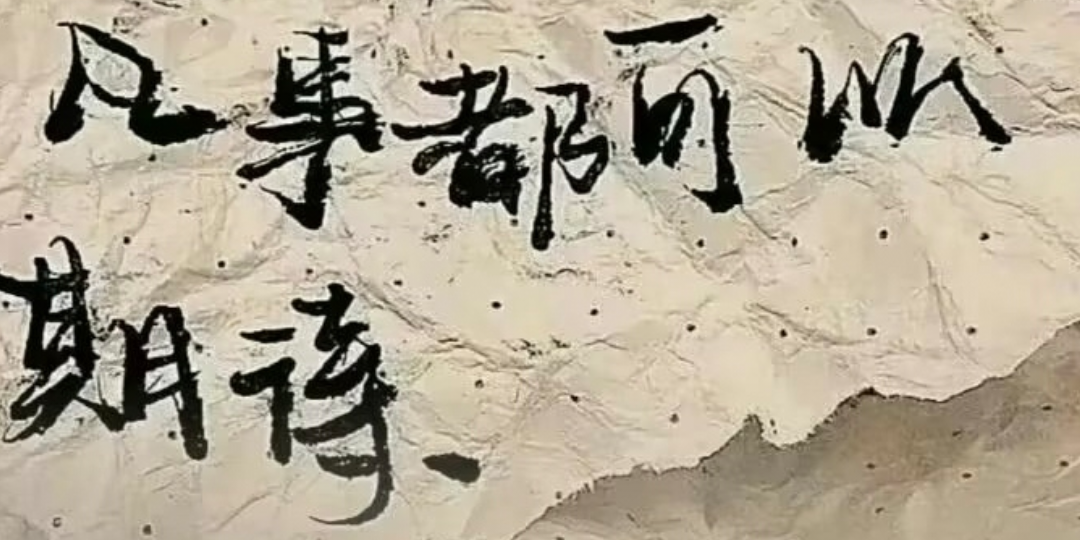 凡事都可以
期待